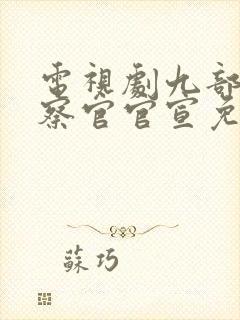 電視劇九部
察官官宣免
蘇巧